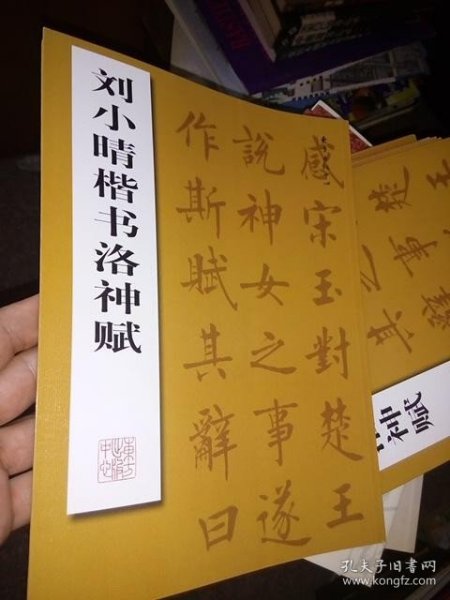 刘小晴楷书洛神赋
感宋玉對楚王
說神女之事遂
作斯賦其辭曰
東方
出版
中心
神赋
孔夫子旧书网
www.kongfz.com